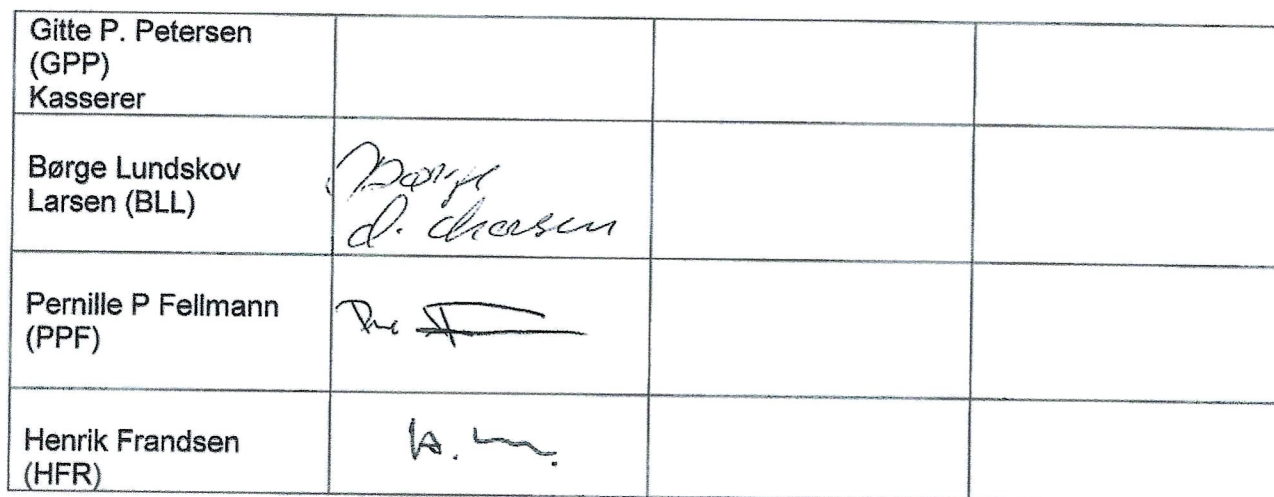 Gitte P. Petersen
(GPP)
Kasserer
Børge Lundskov
Larsen (BLL)
Børge
L. Larsen
Pernille P Fellmann
(PPF)
Henrik Frandsen
(HFR)
H.